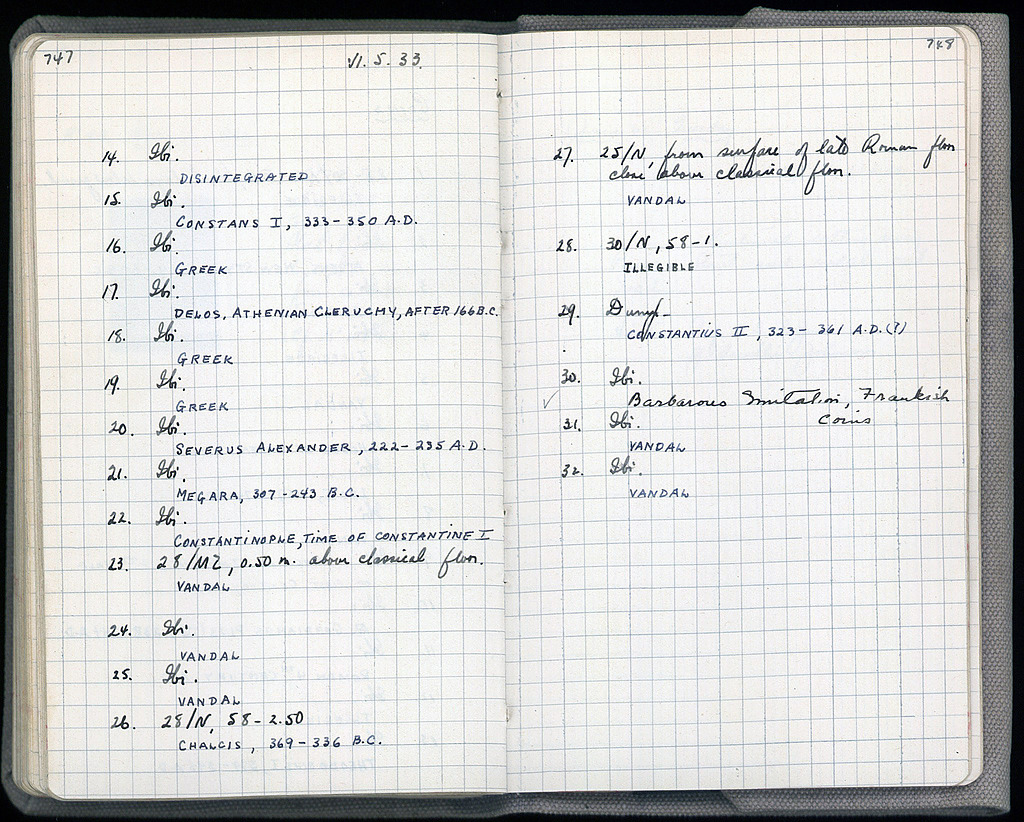 747
VI. 5. 33.
14. Ibi.
DISINTEGRATED
15. Ibi.
CONSTANS I, 333-350 A.D.
16. Ibi.
GREEK
17. Ibi.
DELOS, ATHENIAN CLERUCHY, AFTER 166 B.C.
18. Ibi.
GREEK
19. Ibi.
GREEK
20. Ibi.
SEVERUS ALEXANDER, 222-235 A.D.
21. Ibi.
MEGARA, 307-243 B.C.
22. Ibi.
CONSTANTINOPLE, TIME OF CONSTANTINE I
23. 28/MZ, 0.50 m. above classical floor.
VANDAL
24. Ibi.
VANDAL
25. Ibi.
VANDAL
26. 28/N, 58-2.50
CHALCIS, 369-336 B.C.
748
27. 25/N, from surface of late Roman floor
close above classical floor.
VANDAL
28. 30/N, 58-1.
ILLEGIBLE
29. Dump-
CONSTANTIUS II, 323-361 A.D.(?)
30. Ibi.
✓ Barbarous Imitation, Frankish
coins
31. Ibi.
VANDAL
32. Ibi.
VANDAL